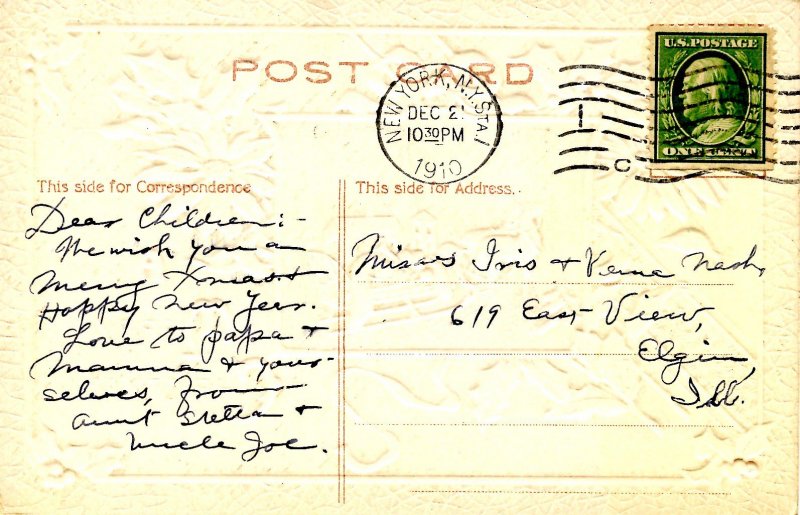 POST CARD
NEW YORK, N.Y. STA. I
DEC 21
10 30 PM
1910
C
U.S. POSTAGE
ONE CENT
This side for Correspondence
This side for Address.
Dear Children:-
We wish you a
Merry Xmas &
Happy New Year.
Love to papa &
Mamma & your-
selves, from
Aunt Stella &
Uncle Joe.
Misses Iris & Verna Nash,
619 East View,
Elgin,
Ill.